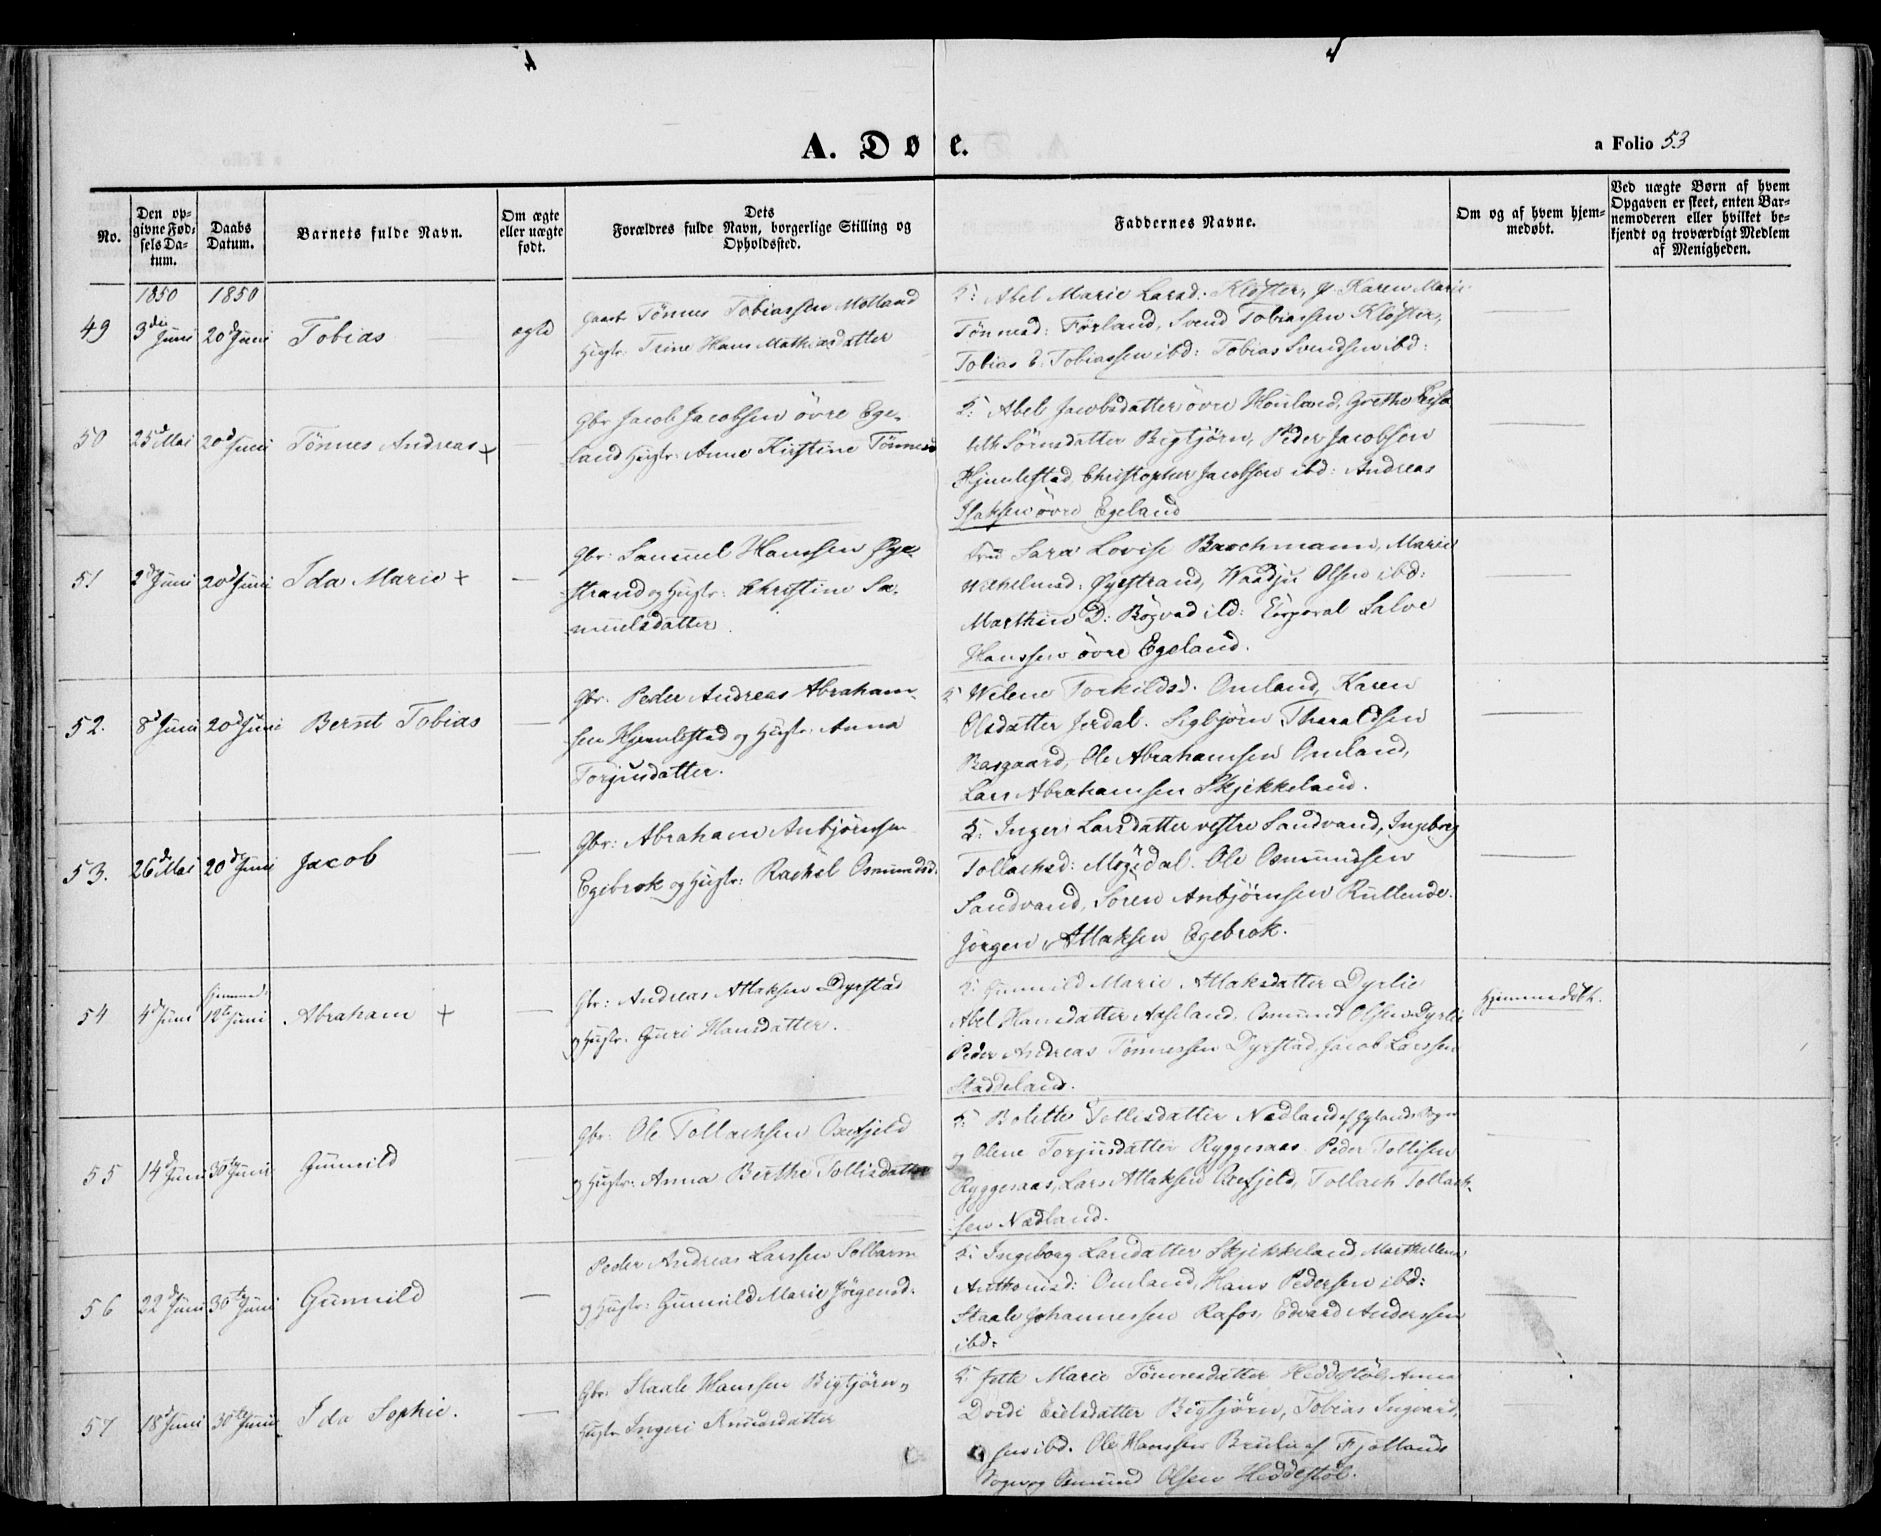 A. Døe.
a Folio 53
No.
Den op-
givne Fød-
sels Da-
tum.
Daabs
Datum.
Barnets fulde Navn.
Om ægte
eller uægte
født.
Dets
Forældres fulde Navn, borgerlige Stilling og
Opholdssted.
Faddernes Navne.
Om og af hvem hjem-
medøbt.
Ved uægte Børn af hvem
Opgaven er skeet, enten Bar-
nemoderen eller hvilket be-
kjendt og troværdigt Medlem
af Menigheden.
1850 1850
49 3die Juni 20d Juni Tobias ægte
Tønnes Tobiassen Motland
Hustr: Trine Hans Mathiasdatter
Abel Marie Larsd: Kloster, Karen Marie
Tønnesd: Førland, Svend Tobiassen Kloster,
Tobias Tobiassen ibd: Tobias Svendsen ibd:
50 25d Mai 20d Juni Tønnes Andreas +
Gbr Jacob Jacobsen övre Ege-
land Hustr: Anne Kirstine Tønnesd
Abel Jacobsdatter övre Grethe Elisa
beth Sörnsdatter Bigtjörn, Peder Jacobsen
Hjemlestad, Christopher Jacobsen ibd: Andreas
Isaksen övre Egeland
51 2d Juni 20d Juni Ida Marie +
Gbr: Samuel Hanssen Øye-
strand og Hustr: Christine Sa-
muelsdatter.
Sara Lovise Brochmann, Marie
Wilhelmsd: Øyestrand, Olsen ibd:
Marthin D: Bögvad ibd: Corporal Salve
Hanssen övre Egeland.
52. 8d Juni 20d Juni Bernt Tobias
Gbr: Peder Andreas Abraham-
sen Hjemlestad og Hustr: Anna
Torjusdatter.
Torkildsd. Omland, Karen
Olsdatter Jerdal. Sigbjörn Theraldsen
Basgaard, Ole Abrahamsen Omland,
Lars Abrahamsen Skjekkeland.
53. 26d Mai 20d Juni Jacob
Gbr: Abraham Anbjørnsen
Egebrok og Hustr: Rachel Osmundsd.
Ingeri Larsdatter vestre Sandvand, Ingeborg
Tollachsd: Moydal. Ole Osmundsen
Sandvand, Soren Anbjørnsen Rullende.
Jørgen Atlaksen Egebrok.
54 4d Juni 12te Juni Abraham +
Gbr: Andreas Atlaksen Dyrstad
og Hustr. Guri Hansdatter.
Gunvild Marie Atlaksdatter Dyrlie
Abel Hansdatter Aaseland. Osmund Olsen Dyrlie
Peder Andreas Tønnessen Dyrstad, Jacob Larssen
Staddeland.
Hjemmedöbt.
55 14d Juni 30te Juni Gunvild
Gbr: Ole Tollachsen Oxefjeld
og Hustr: Anna Berthe Tollisdatter
Bolette Tollisdatter Nædland af Gylands Sogn
og Olene Torjusdatter Ryggesaas. Peder Tollisen
Ryggesaas, Lars Atlaksen Oxefjeld, Tollach Tollach-
sen Nædland.
56 22d Juni 30te Juni Gunvild
Peder Andreas Larssen Solbarm
og Hustr: Gunvild Marie Jörgensd.
Ingeborg Larsdatter Skjekkeland, Marthellena
Anthonisd: Omland, Hans Pedersen ibd:
Staale Johannessen Rafos, Edvard Anderssen
ibd:
57 18d Juni 30te Juni Ida Sophie.
Gbr: Staale Hanssen Bigtjörn og
Hustr Ingeri Knudsdatter
Marie Tönnesdatter Heddestöl, Anna
Dordi Eielsdatter Bigtjörn, Tobias Ingvard-
sen ibd. Ole Hanssen af Fjotlands
Sogn og Osmund Olsen Heddestöl.